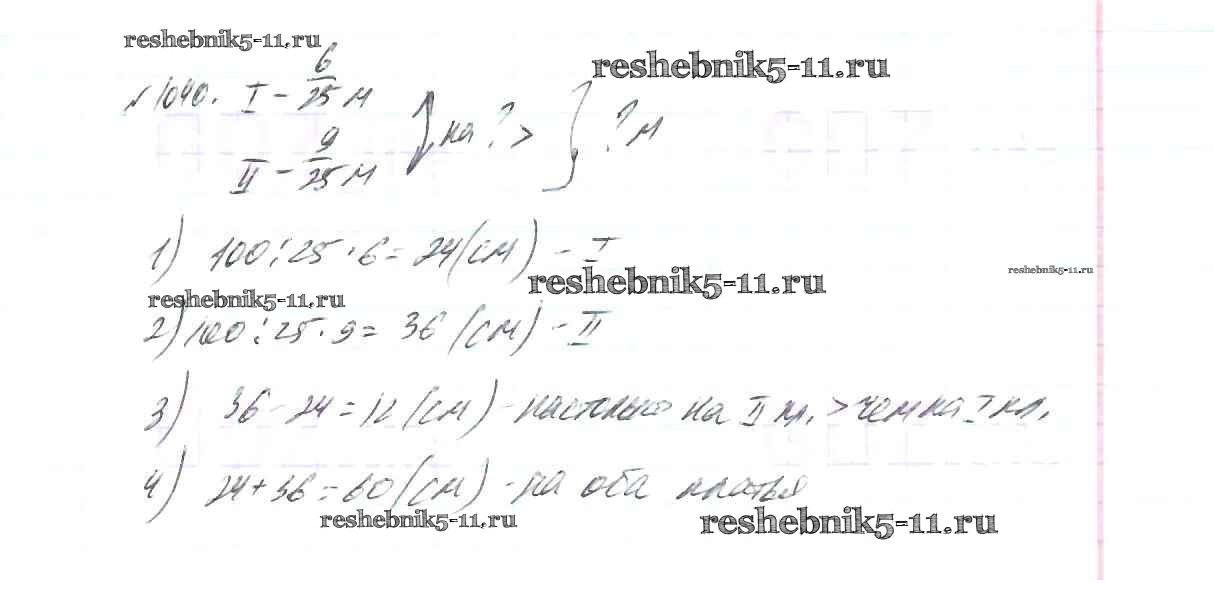 reshebnik5-11.ru
reshebnik5-11.ru
№1040. I - 6/25 м
II - 9/25 м } на ? > } ? м
1) 100:25·6=24(см) - I
reshebnik5-11.ru
reshebnik5-11.ru
reshebnik5-11.ru
2) 100:25·9= 36 (см) - II
3) 36-24=12(см) - настолько на II пл. > чем на I пл.
4) 24+36=60(см) - на оба платья
reshebnik5-11.ru
reshebnik5-11.ru